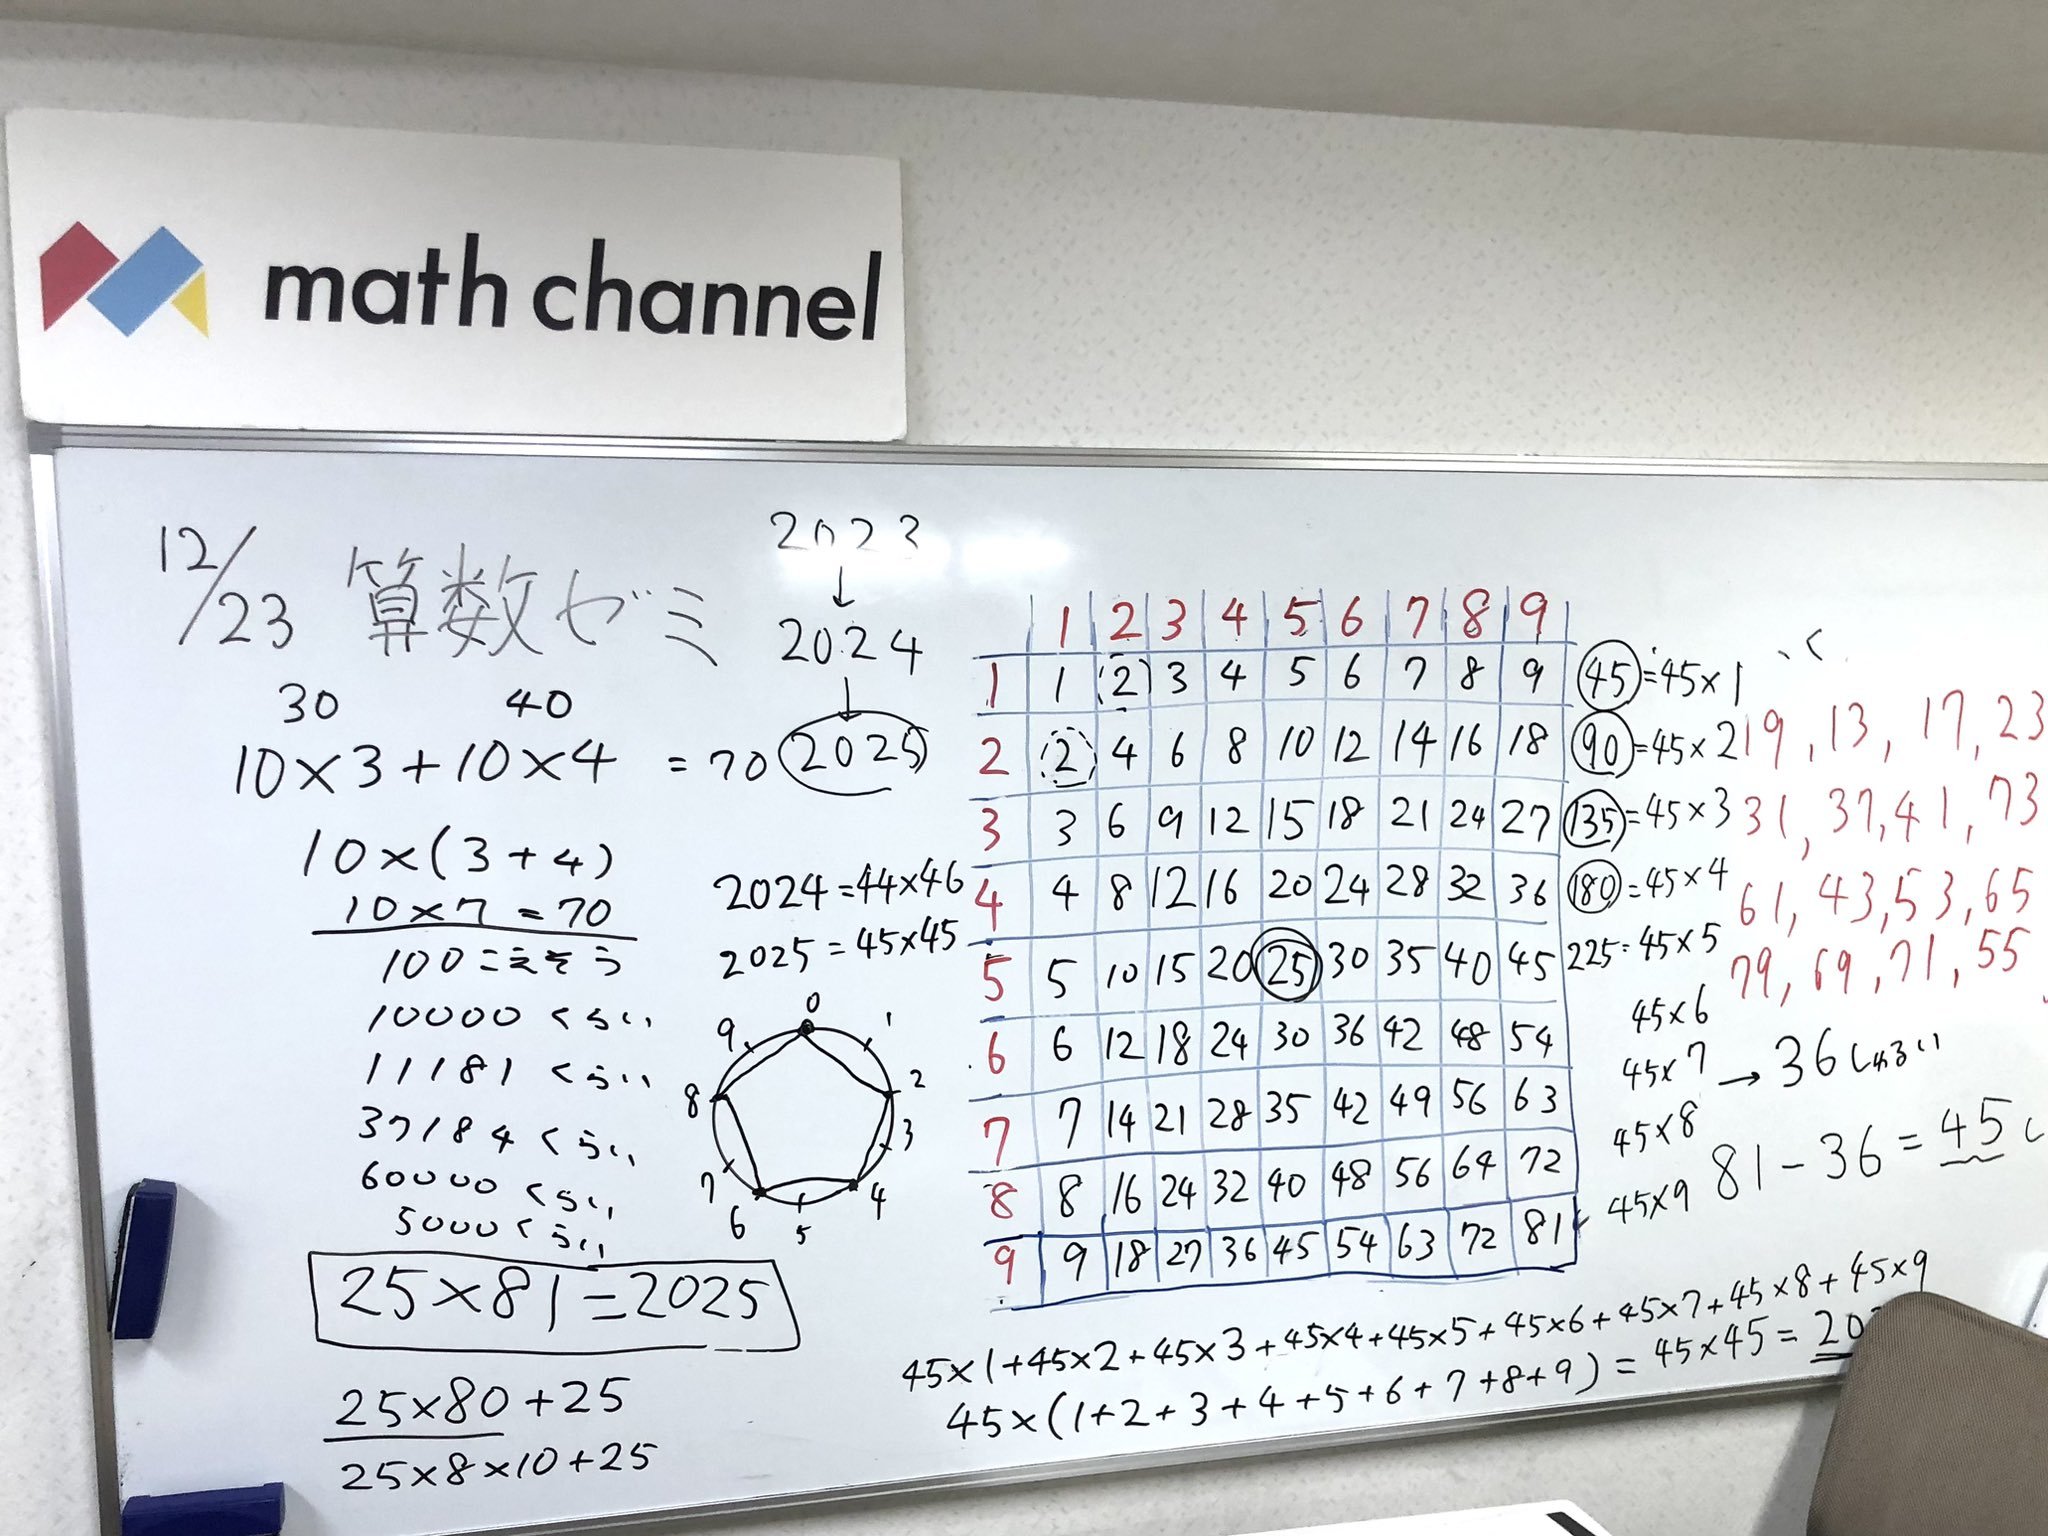 math channel
12/23 算数ゼミ
2023
↓
2024
↓
2025
30 40
10×3+10×4 =70
10×(3+4)
10×7=70
100こえそう
10000くらい
11181くらい
37184くらい
60000くらい
5000くらい
25×81=2025
25×80+25
25×8×10+25
2024=44×46
2025=45×45
0
1
2
3
4
5
6
7
8
9
1 2 3 4 5 6 7 8 9
1 1 2 3 4 5 6 7 8 9
2 2 4 6 8 10 12 14 16 18
3 3 6 9 12 15 18 21 24 27
4 4 8 12 16 20 24 28 32 36
5 5 10 15 20 25 30 35 40 45
6 6 12 18 24 30 36 42 48 54
7 7 14 21 28 35 42 49 56 63
8 8 16 24 32 40 48 56 64 72
9 9 18 27 36 45 54 63 72 81
45=45×1
90=45×2
135=45×3
180=45×4
225=45×5
45×6
45×7
45×8
45×9
19, 13, 17, 23
31, 37, 41, 73
61, 43, 53, 65
79, 69, 71, 55
→ 36しゅるい
81-36=45
45×1+45×2+45×3+45×4+45×5+45×6+45×7+45×8+45×9
45×(1+2+3+4+5+6+7+8+9)=45×45=20